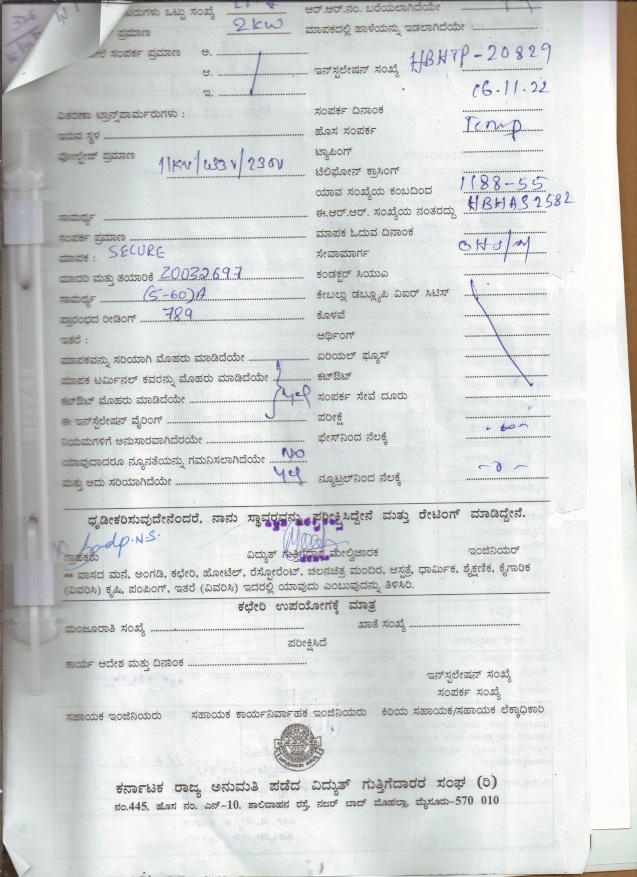 ಒಟ್ಟು ಸಂಖ್ಯೆ ಆರ್.ಆರ್.ನಂ. ಬರೆಯಲಾಗಿದೆಯೇ
ಪ್ರಮಾಣ 2KW ಮಾಪಕದಲ್ಲಿ ಹಾಳೆಯನ್ನು ಇಡಲಾಗಿದೆಯೇ
ಸಂಪರ್ಕ ಪ್ರಮಾಣ ಅ.
ಆ. ಇನ್‌ಸ್ಟಲೇಷನ್ ಸಂಖ್ಯೆ HBHTP-20829
ಇ. 06.11.22
ವಿತರಣಾ ಟ್ರಾನ್ಸ್‌ಫಾರ್ಮರುಗಳು : ಸಂಪರ್ಕ ದಿನಾಂಕ
ಇರುವ ಸ್ಥಳ ಹೊಸ ಸಂಪರ್ಕ Temp
ವೋಲ್ಟೇಜ್ ಪ್ರಮಾಣ 11KV/433V/230V ಟ್ಯಾಪಿಂಗ್
ಟೆಲಿಫೋನ್ ಕ್ರಾಸಿಂಗ್
ಯಾವ ಸಂಖ್ಯೆಯ ಕಂಬದಿಂದ 1188-55
ಸಾಮರ್ಥ್ಯ ಈ.ಆರ್.ಆರ್. ಸಂಖ್ಯೆಯ ನಂತರದ್ದು HBHAS2582
ಸಂಪರ್ಕ ಪ್ರಮಾಣ ಮಾಪಕ ಓದುವ ದಿನಾಂಕ
ಮಾಪಕ : SECURE ಸೇವಾಮಾರ್ಗ
ಮಾದರಿ ಮತ್ತು ತಯಾರಿಕೆ 20032697 ಕಂಡಕ್ಟರ್ ಸಿಯುಎ
ಸಾಮರ್ಥ್ಯ (5-60)A ಕೇಬಲ್ಲು ಡಬ್ಲ್ಯೂಪಿ ವಿಐರ್ ಸಿಟಿಸ್
ಪ್ರಾರಂಭದ ರೀಡಿಂಗ್ 789 ಕೊಳವೆ
ಇತರೆ : ಆರ್ಥಿಂಗ್
ಮಾಪಕವನ್ನು ಸರಿಯಾಗಿ ಮೊಹರು ಮಾಡಿದೆಯೇ ಏರಿಯಲ್ ಫ್ಯೂಸ್
ಮಾಪಕ ಟರ್ಮಿನಲ್ ಕವರನ್ನು ಮೊಹರು ಮಾಡಿದೆಯೇ ಕಟ್‌ಔಟ್
ಕಟ್‌ಔಟ್ ಮೊಹರು ಮಾಡಿದೆಯೇ yes ಸಂಪರ್ಕ ಸೇವೆ ದೂರು
ಈ ಇನ್‌ಸ್ಟಲೇಷನ್ ವೈರಿಂಗ್ ಪರೀಕ್ಷೆ
ನಿಯಮಗಳಿಗೆ ಅನುಸಾರವಾಗಿದೆರಯೇ ಫೇಸ್‌ನಿಂದ ನೆಲಕ್ಕೆ
ಯಾವುದಾದರೂ ನ್ಯೂನತೆಯನ್ನು ಗಮನಿಸಲಾಗಿದೆಯೇ NO
ಮತ್ತು ಅದು ಸರಿಯಾಗಿದೆಯೇ yes ನ್ಯೂಟ್ರಲ್‌ನಿಂದ ನೆಲಕ್ಕೆ
ಧೃಡೀಕರಿಸುವುದೇನೆಂದರೆ, ನಾನು ಸ್ಥಾವರವನ್ನು ಪರೀಕ್ಷಿಸಿದ್ದೇನೆ ಮತ್ತು ರೇಟಿಂಗ್ ಮಾಡಿದ್ದೇನೆ.
ಗ್ರಾಹಕರು ವಿದ್ಯುತ್ ಗುತ್ತಿಗೆದಾರ ಮೇಲ್ವಿಚಾರಕ ಇಂಜಿನಿಯರ್
** ವಾಸದ ಮನೆ, ಅಂಗಡಿ, ಕಛೇರಿ, ಹೋಟೆಲ್, ರೆಸ್ಟೋರೆಂಟ್, ಚಲನಚಿತ್ರ ಮಂದಿರ, ಆಸ್ಪತ್ರೆ, ಧಾರ್ಮಿಕ, ಶೈಕ್ಷಣಿಕ, ಕೈಗಾರಿಕ
(ವಿವರಿಸಿ) ಕೃಷಿ, ಪಂಪಿಂಗ್, ಇತರೆ (ವಿವರಿಸಿ) ಇದರಲ್ಲಿ ಯಾವುದು ಎಂಬುವುದನ್ನು ತಿಳಿಸಿರಿ.
ಕಛೇರಿ ಉಪಯೋಗಕ್ಕೆ ಮಾತ್ರ
ಮಂಜೂರಾತಿ ಸಂಖ್ಯೆ ಖಾತೆ ಸಂಖ್ಯೆ
ಪರೀಕ್ಷಿಸಿದೆ
ಕಾರ್ಯ ಆದೇಶ ಮತ್ತು ದಿನಾಂಕ
ಇನ್‌ಸ್ಟಲೇಷನ್ ಸಂಖ್ಯೆ
ಸಂಪರ್ಕ ಸಂಖ್ಯೆ
ಸಹಾಯಕ ಇಂಜಿನಿಯರು ಸಹಾಯಕ ಕಾರ್ಯನಿರ್ವಾಹಕ ಇಂಜಿನಿಯರು ಕಿರಿಯ ಸಹಾಯಕ/ಸಹಾಯಕ ಲೆಕ್ಕಾಧಿಕಾರಿ
ಕರ್ನಾಟಕ ರಾಜ್ಯ ಅನುಮತಿ ಪಡೆದ ವಿದ್ಯುತ್ ಗುತ್ತಿಗೆದಾರರ ಸಂಘ (ರಿ)
ನಂ.445, ಹೊಸ ನಂ. ಎನ್-10, ಶಾಲಿವಾಹನ ರಸ್ತೆ, ನಜರ್ ಬಾದ್ ಮೊಹಲ್ಲಾ, ಮೈಸೂರು-570 010